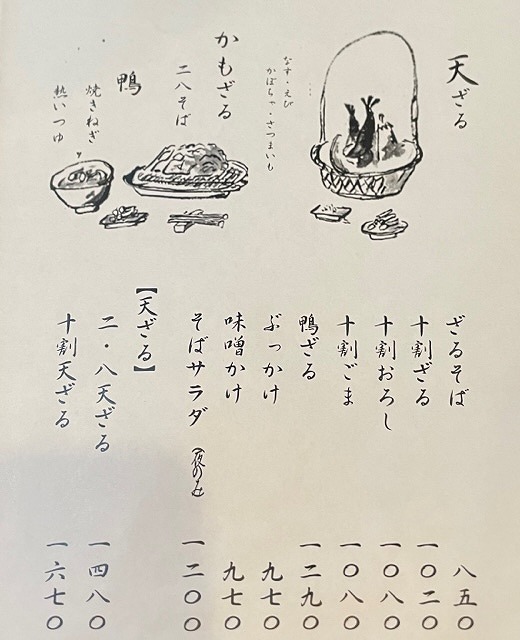 天ざる
なす・えび
かぼちゃ・さつまいも
かもざる
二八そば
鴨
焼きねぎ
熱いつゆ
ざるそば 八五〇
十割ざる 一〇二〇
十割おろし 一〇八〇
十割ごま 一〇八〇
鴨ざる 一二九〇
ぶっかけ 九七〇
味噌かけ 九七〇
そばサラダ (夜のみ) 一二〇〇
【天ざる】
二・八天ざる 一四八〇
十割天ざる 一六七〇